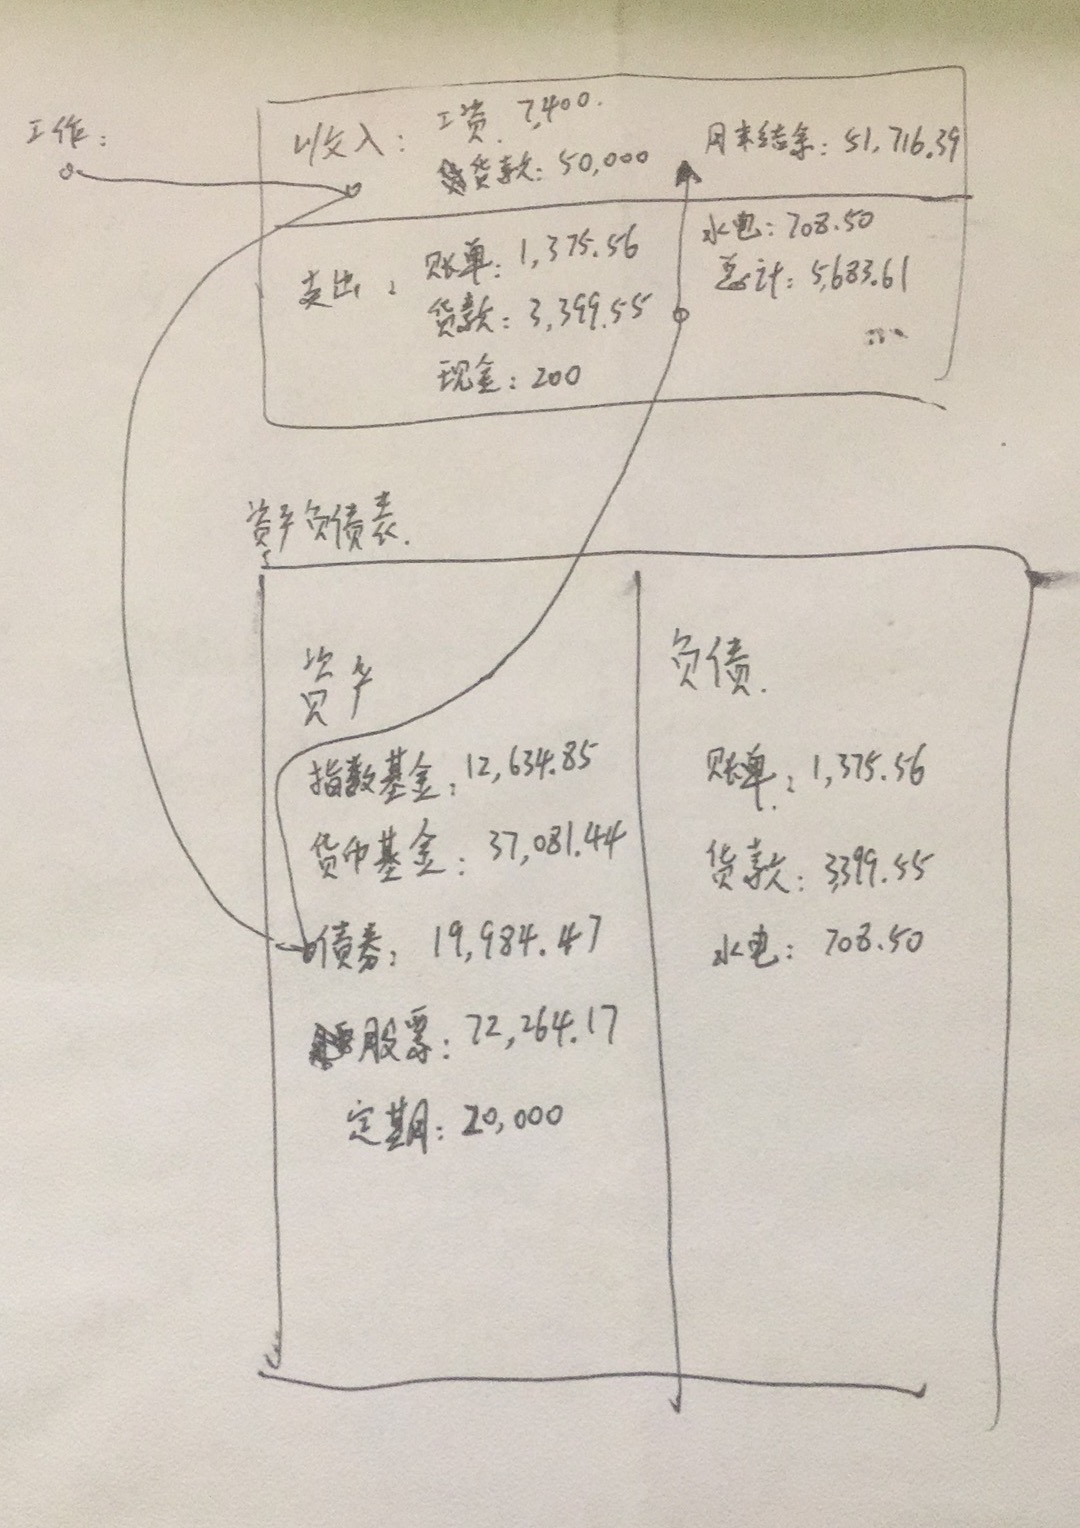 工作:
收入: 工资. 7,400.
贷款: 50,000
月末结余: 51,716.39
支出: 账单: 1,375.56
贷款: 3,399.55
现金: 200
水电: 708.50
总计: 5,683.61
资产负债表.
资产
指数基金: 12,634.85
货币基金: 37,081.44
债券: 19,984.47
股票: 72,264.17
定期: 20,000
负债.
账单: 1,375.56
贷款: 3399.55
水电: 708.50